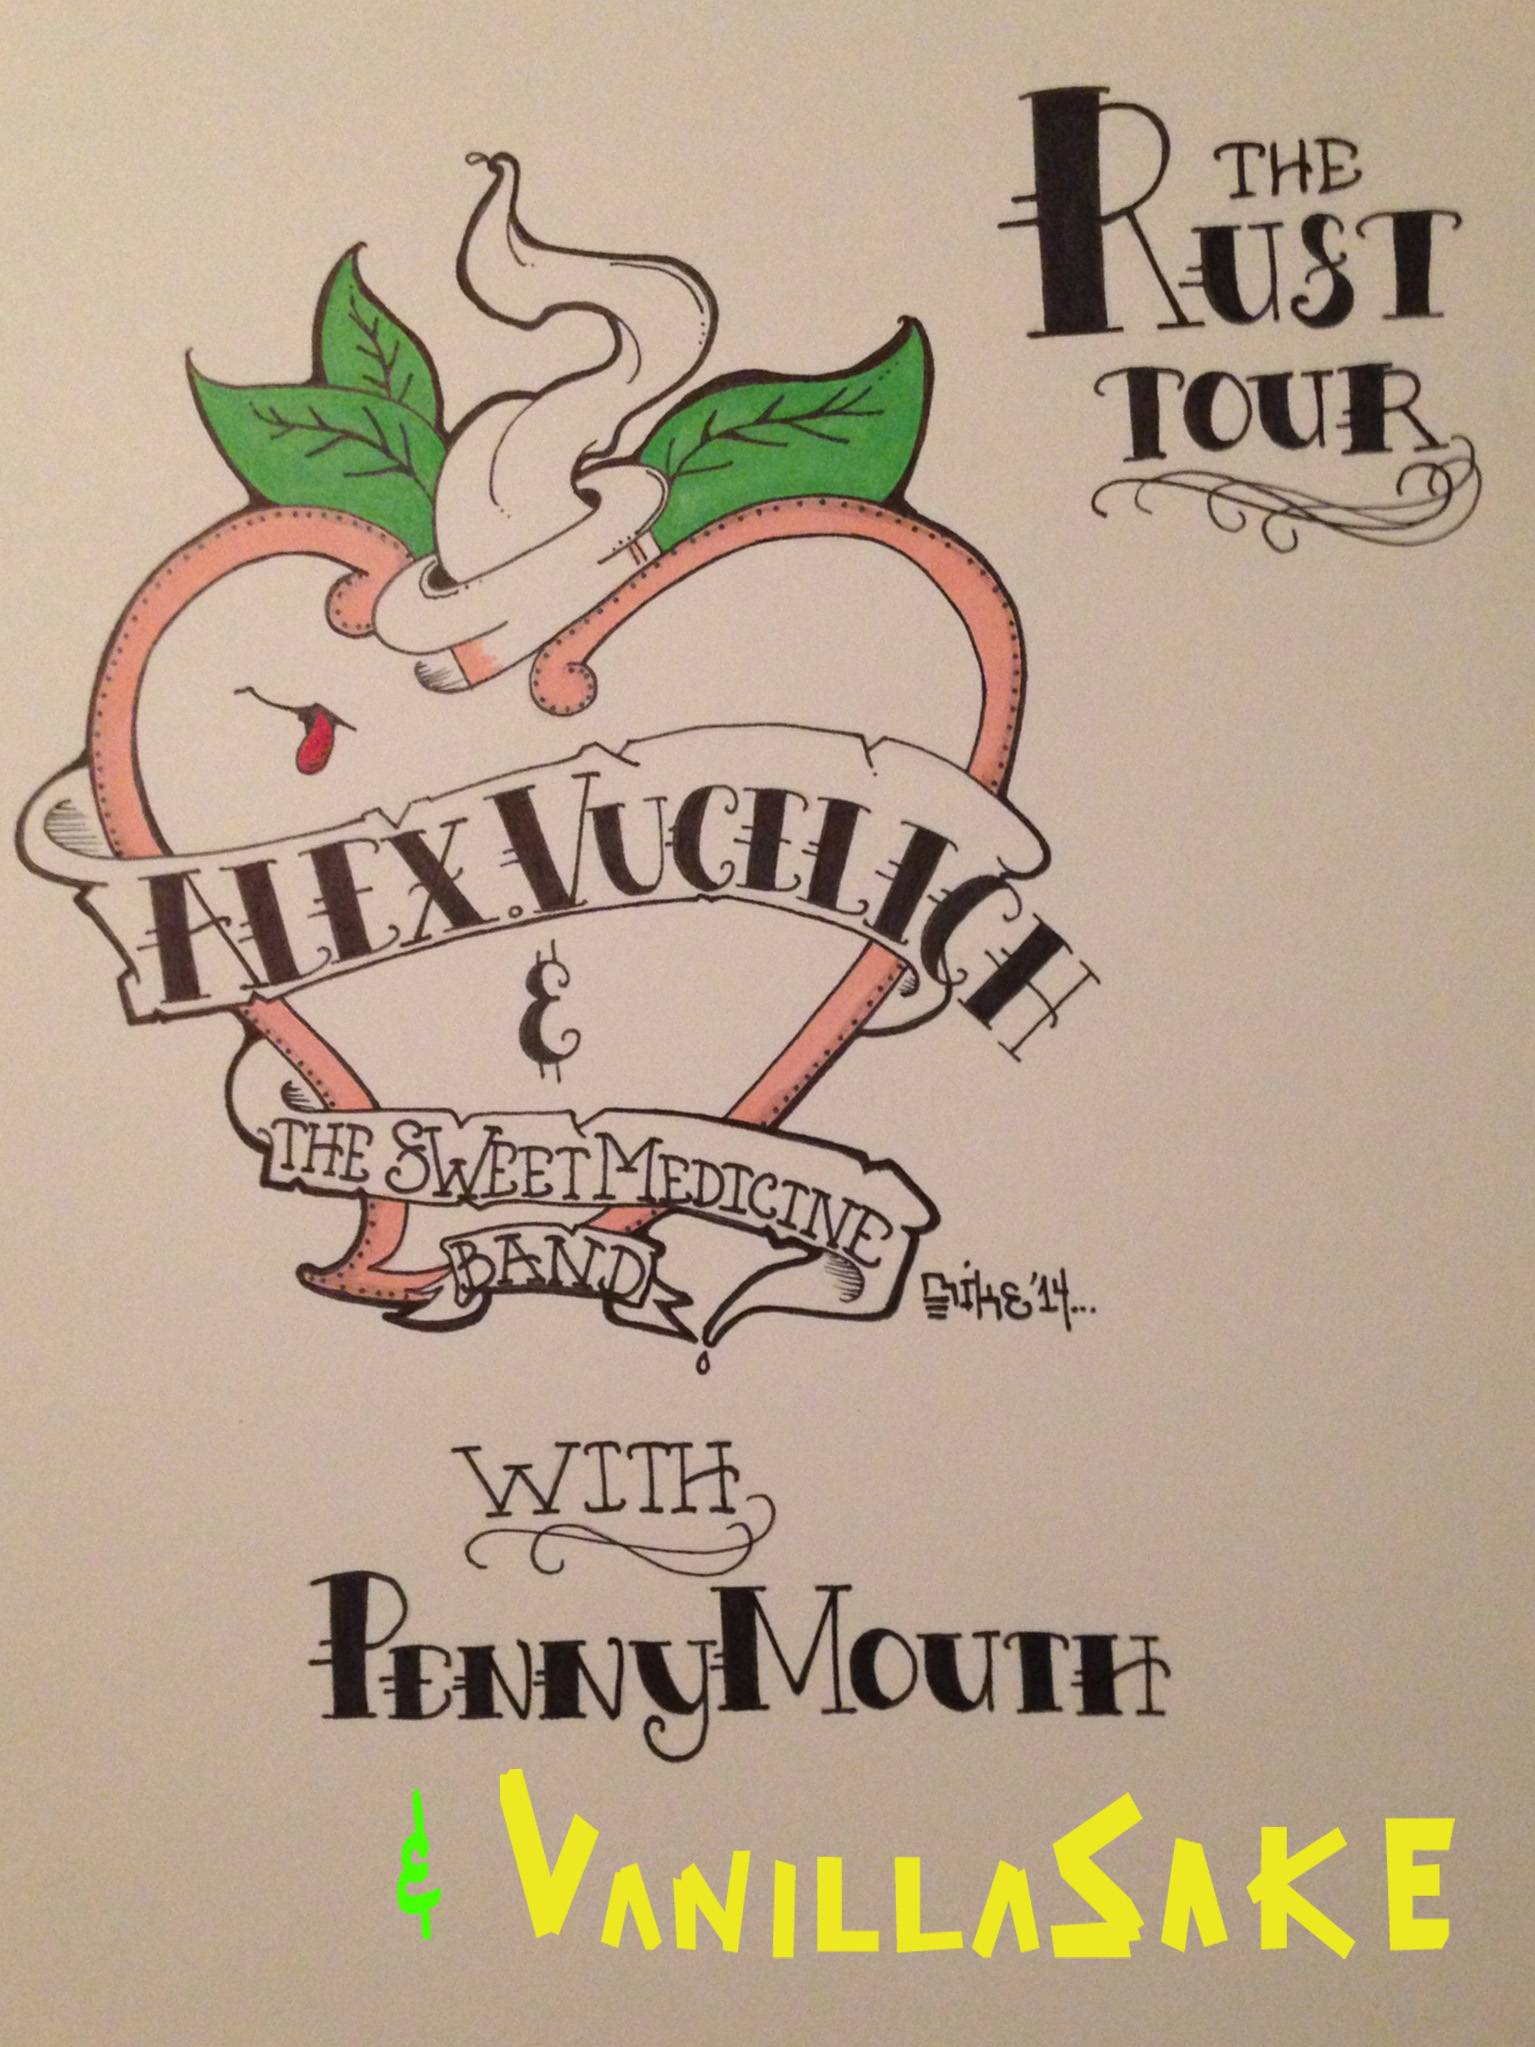 THE
RUST
TOUR
ALEX.VUCELICH
&
THE SWEET MEDICINE
BAND
MIKE '14...
WITH
PENNYMOUTH
& VANILLASAKE